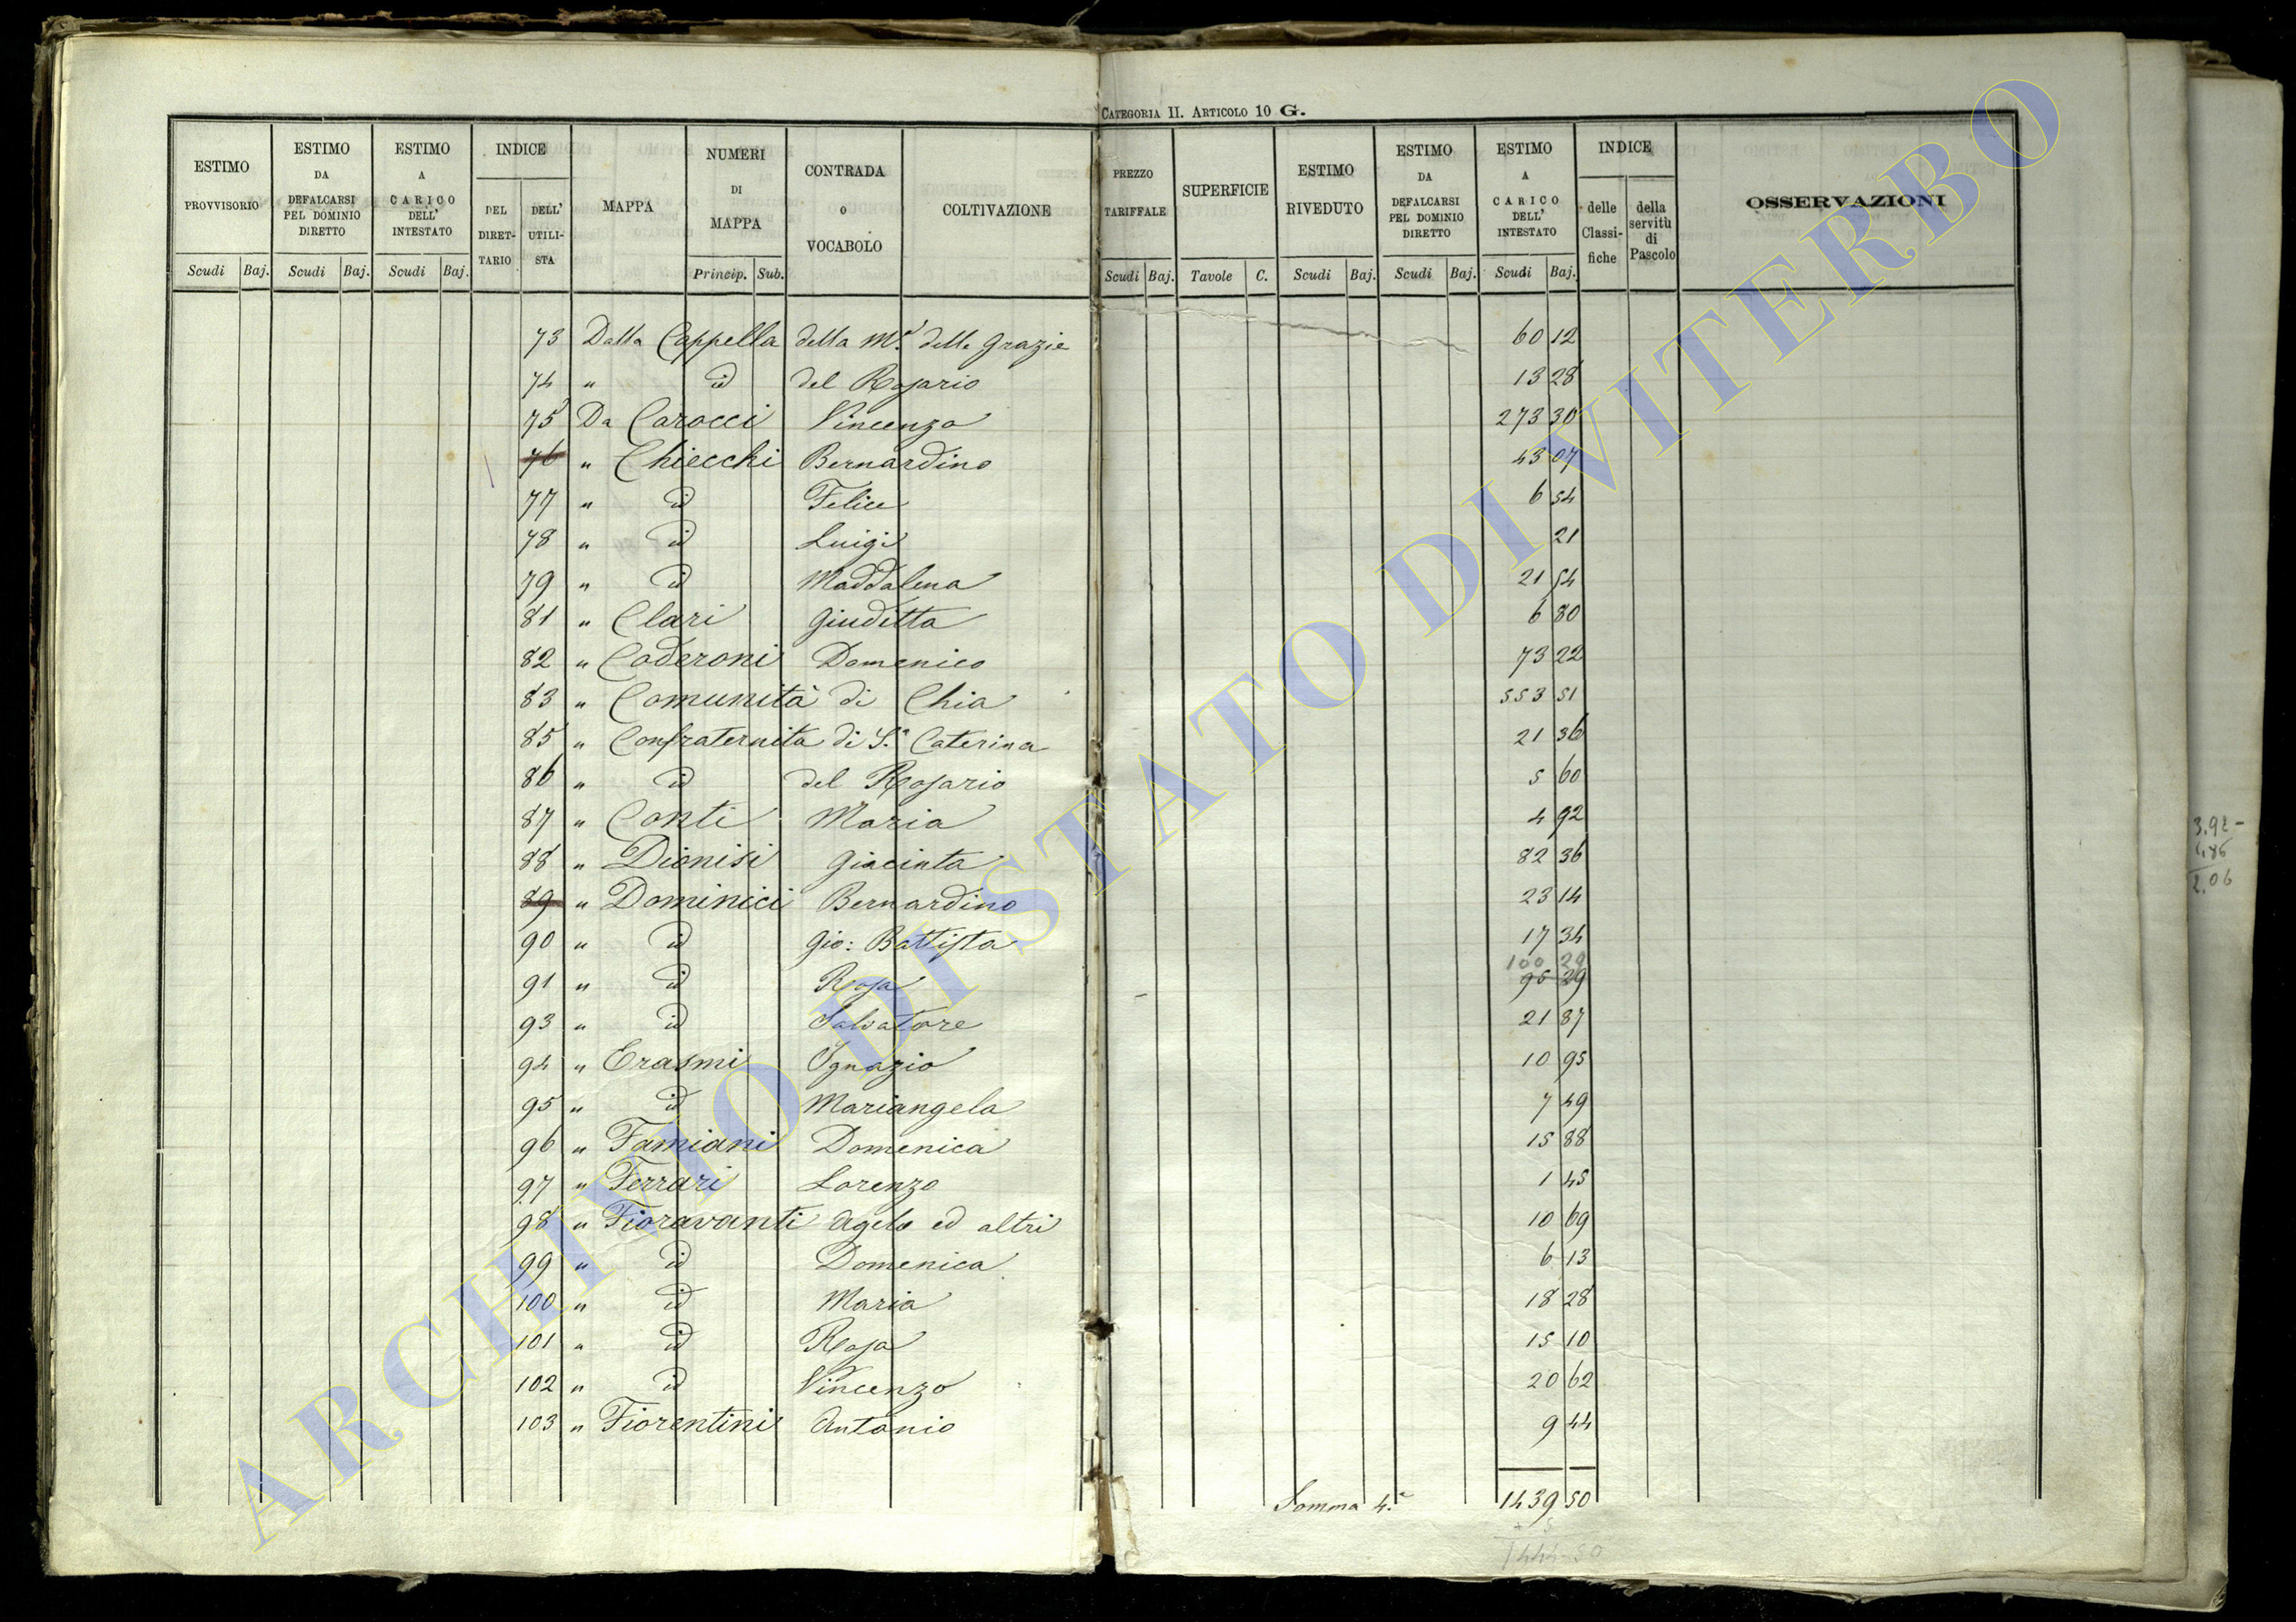 CATEGORIA II. ARTICOLO 10 G.
ESTIMO PROVVISORIO Scudi Baj.
ESTIMO DA DEFALCARSI PEL DOMINIO DIRETTO Scudi Baj.
ESTIMO A CARICO DELL' INTESTATO Scudi Baj.
INDICE DEL DIRETTARIO DELL' UTILISTA
MAPPA
NUMERI DI MAPPA Princip. Sub.
CONTRADA O VOCABOLO
COLTIVAZIONE
PREZZO TARIFFALE Scudi Baj.
SUPERFICIE Tavole C.
ESTIMO RIVEDUTO Scudi Baj.
ESTIMO DA DEFALCARSI PEL DOMINIO DIRETTO Scudi Baj.
ESTIMO A CARICO DELL' INTESTATO Scudi Baj.
INDICE delle Classifiche della servitù di Pascolo
OSSERVAZIONI
73 Dalla Cappella della M.ª delle Grazie 60 12
74 " id del Rosario 13 28
75 Da Carocci Vincenzo 273 30
76 " Chiecchi Bernardino 43 07
77 " id Felice 6 54
78 " id Luigi 21
79 " id Maddalena 21 54
81 " Clari Giuditta 6 80
82 " Coderoni Domenico 73 22
83 " Comunità di Chia 553 51
85 " Confraternita di S.ª Caterina 21 36
86 " id del Rosario 5 60
87 " Conti Maria 4 92
88 " Dionisi Giacinta 82 36
89 " Dominici Bernardino 23 14
90 " id Gio: Battista 17 34
100 29
91 " id Rosa 95 29
93 " id Salvatore 21 87
94 " Erasmi Ignazio 10 95
95 " id Mariangela 7 49
96 " Famiani Domenica 15 88
97 " Ferrari Lorenzo 1 45
98 " Fioravanti Agelo ed altri 10 69
99 " id Domenica 6 13
100 " id Maria 18 28
101 " id Rosa 15 10
102 " id Vincenzo 20 62
103 " Fiorentini Antonio 9 44
Somma 4.ª 1439 50
1444 50
2.06
ARCHIVIO DI STATO DI VITERBO